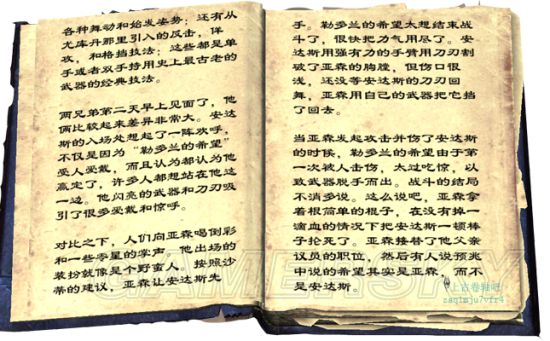 各种舞动和始发姿势；还有从
尤库丹那里引入的反击，佯
攻，和格挡技法；这些都是单
手或者双手持用史上最古老的
武器的经典技法。
两兄弟第二天早上见面了，他
俩比较起来差异非常大。安达
斯的入场处想起了一阵欢呼，
不仅是因为“勒多兰的希望”
受人爱戴，而且认为都认为他
赢定了，许多人都想站在他这
一边。他闪亮的武器和刀刃吸
引了很多爱戴和惊呼。
对比之下，人们向亚森喝倒彩
和一些零星的掌声，他出场的
装扮就像是个野蛮人。按照沙
蒂的建议，亚森让安达斯先
手。勒多兰的希望太想结束战
斗了，很快把力气用尽了。安
达斯用强有力的手臂用刀刃割
破了亚森的胸膛，但伤口很
浅，还没等安达斯的刀刃回
舞，亚森用自己的武器把它挡
了回去。
当亚森发起攻击并伤了安达斯
的时候，勒多兰的希望由于第
一次被人击伤，太过吃惊，以
致武器脱手而出。战斗的结局
不消多说。这么说吧，亚森拿
着根简单的棍子，在没有掉一
滴血的情况下把安达斯一顿棒
子抡死了。亚森接替了他父亲
议员的职位，然后有人说预兆
中说的希望其实是亚森，而不
是安达斯。
GAMERSKY
上古卷轴吧
zaq1mju7vfr4